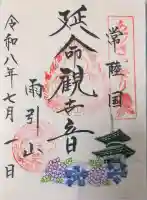 常陸国
延命観世音
雨引山
令和八年七月一日